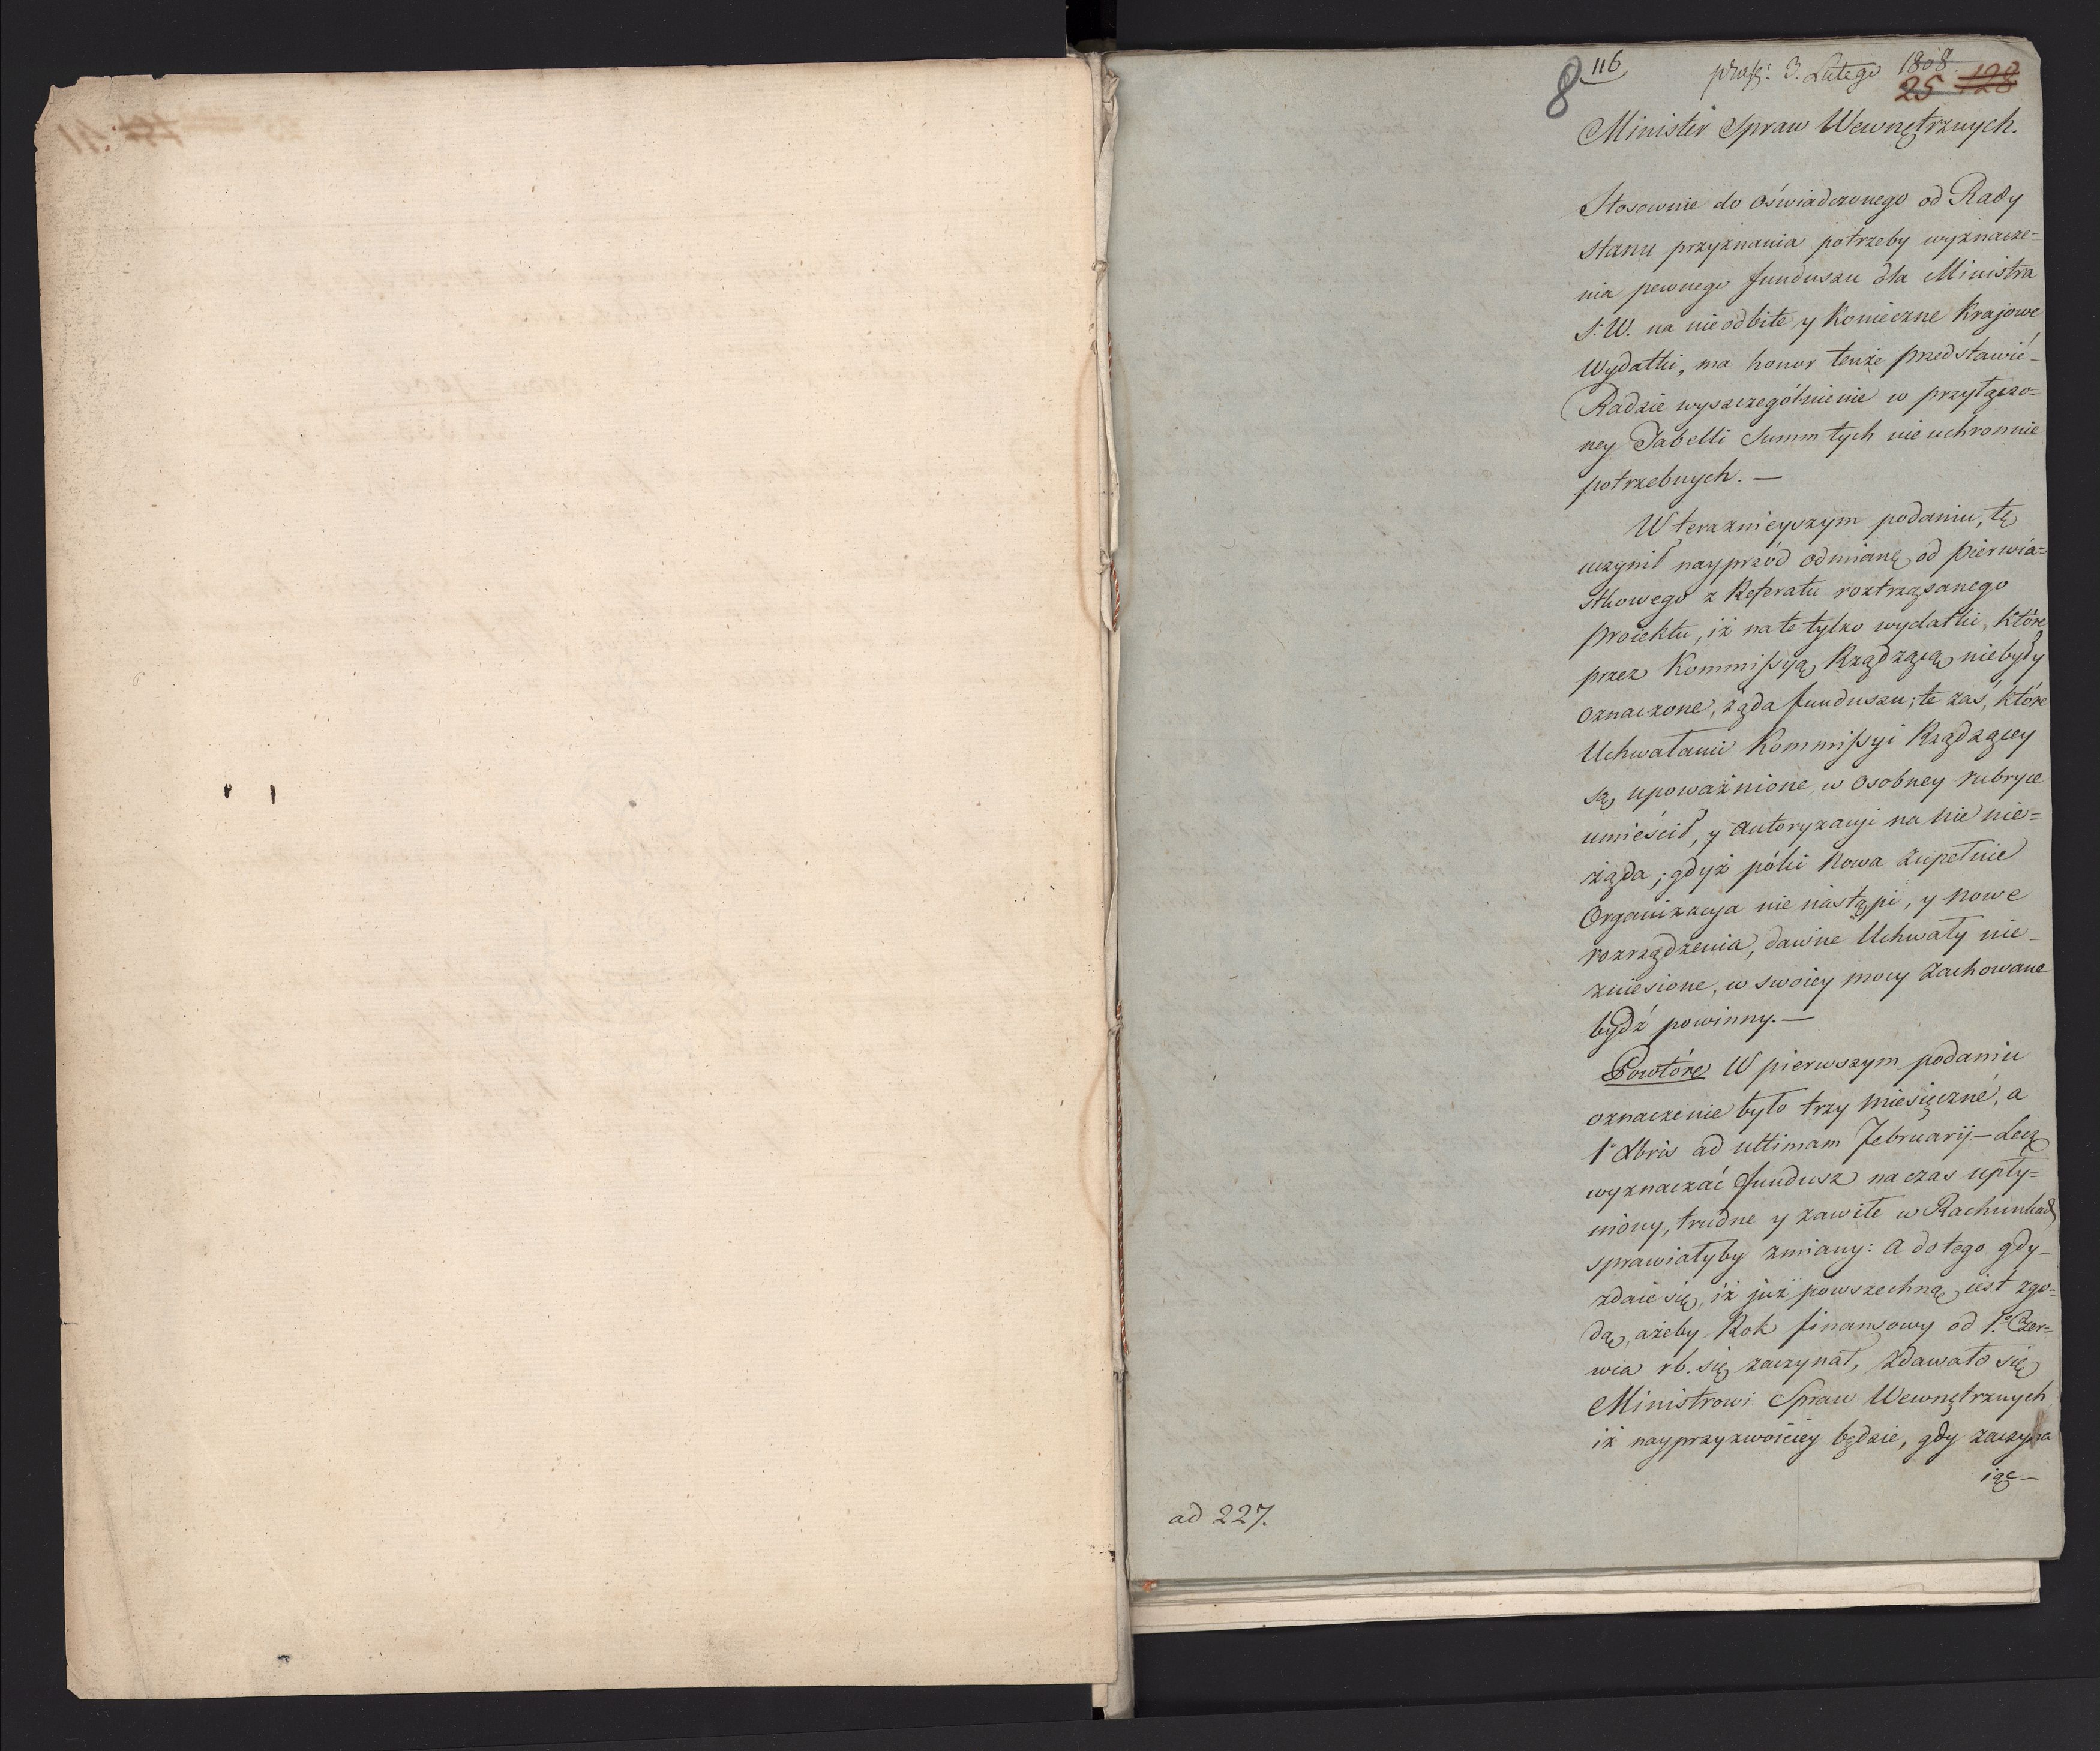 8 116 praes: 3. Lutego 1808.
25 128
Minister Spraw Wewnętrznych.
Stosownie do oświadczonego od Rady
Stanu przyznania potrzeby wyznacze=
nia pewnego funduszu dla Ministra
S: W. na nieodbite y Konieczne Krajowe
Wydatki, ma honor tenże przedstawić
Radzie wyszczególnienie w przyłączo=
ney Tabelli Summ tych nieuchronnie
potrzebnych. —
W teraznieyszym podaniu, tę
uczynił nayprzód odmianę od pierwia=
stkowego z Referatu roztrząsanego
proiektu, iż na te tylko wydatki, które
przez Kommissyą Rządzącą niebyły
oznaczone, żąda funduszu; te zaś, które
Uchwałami Kommissyi Rządzącey
są upoważnione, w osobney rubryce
umieścił, y autoryzacyi na nie nie=
żąda; gdyż póki nowa zupełnie
Organizacya nie nastąpi, y nowe
rozrządzenia, dawne Uchwały nie-
zniesione, w swoiey mocy zachowane
bydź powinny. —
Powtóre W pierwszym podaniu
oznaczenie było trzy miesięczne, a
1ª Xbris ad ultimam Februarij. — Lecz
wyznaczać fundusz na czas upły=
niony, trudne y zawiłe w Rachunkach
sprawiałyby zmiany: a do tego gdy-
zdaie się, iż już powszechną iest zgo=
dą, ażeby Rok finansowy od 1º Czer=
wca rb. się zaczynał, zdawało się
Ministrowi Spraw Wewnętrznych
iż nayprzyzwoiciey będzie, gdy zaczyna
iąc —
ad 227.